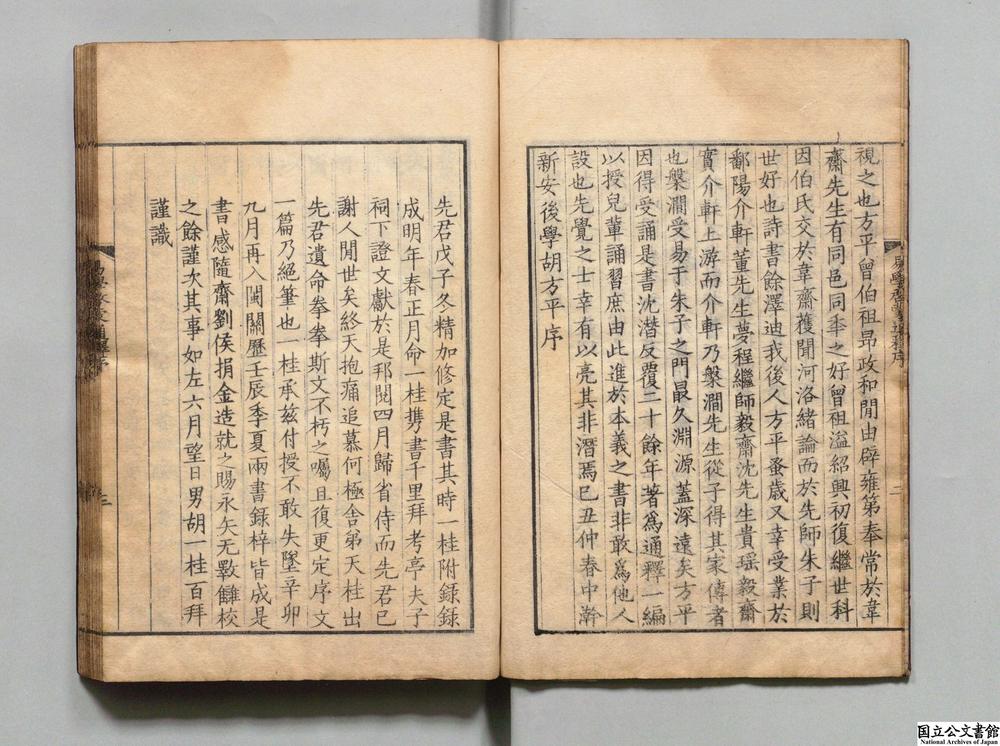 視之也方平曾伯祖昴政和間由辟雍第奉常於韋
齋先生有同邑同年之好曾祖溢紹興初復繼世科
因伯氏交於韋齋獲聞河洛緒論而於先師朱子則
世好也詩書餘澤迪我後人方平蚤歲又幸受業於
鄱陽介軒董先生夢程繼師毅齋沈先生貴瑶毅齋
實介軒上游而介軒乃槃澗先生從子得其家傳者
也槃澗受易于朱子之門最久淵源蓋深遠矣方平
因得受誦是書沈潛反覆二十餘年著爲通釋一編
以授兒輩誦習庶由此進於本義之書非敢爲他人
設也先覺之士幸有以亮其非潛焉已丑仲春中澣
新安後學胡方平序
二
先君戊子冬精加修定是書其時一桂附録録
成明年春正月命一桂携書千里拜考亭夫子
祠下證文獻於是邦閱四月歸省侍而先君已
謝人間世矣終天抱痛追慕何極舍弟天桂出
先君遺命拳拳斯文不朽之囑且復更定序文
一篇乃絕筆也一桂承兹付授不敢失墜辛卯
九月再入閩關歷壬辰季夏兩書錄梓皆成是
書感隨齋劉侯捐金造就之賜永矢无斁讎校
之餘謹次其事如左六月望日男胡一桂百拜
謹識
三
国立公文書館
National Archives of Japan